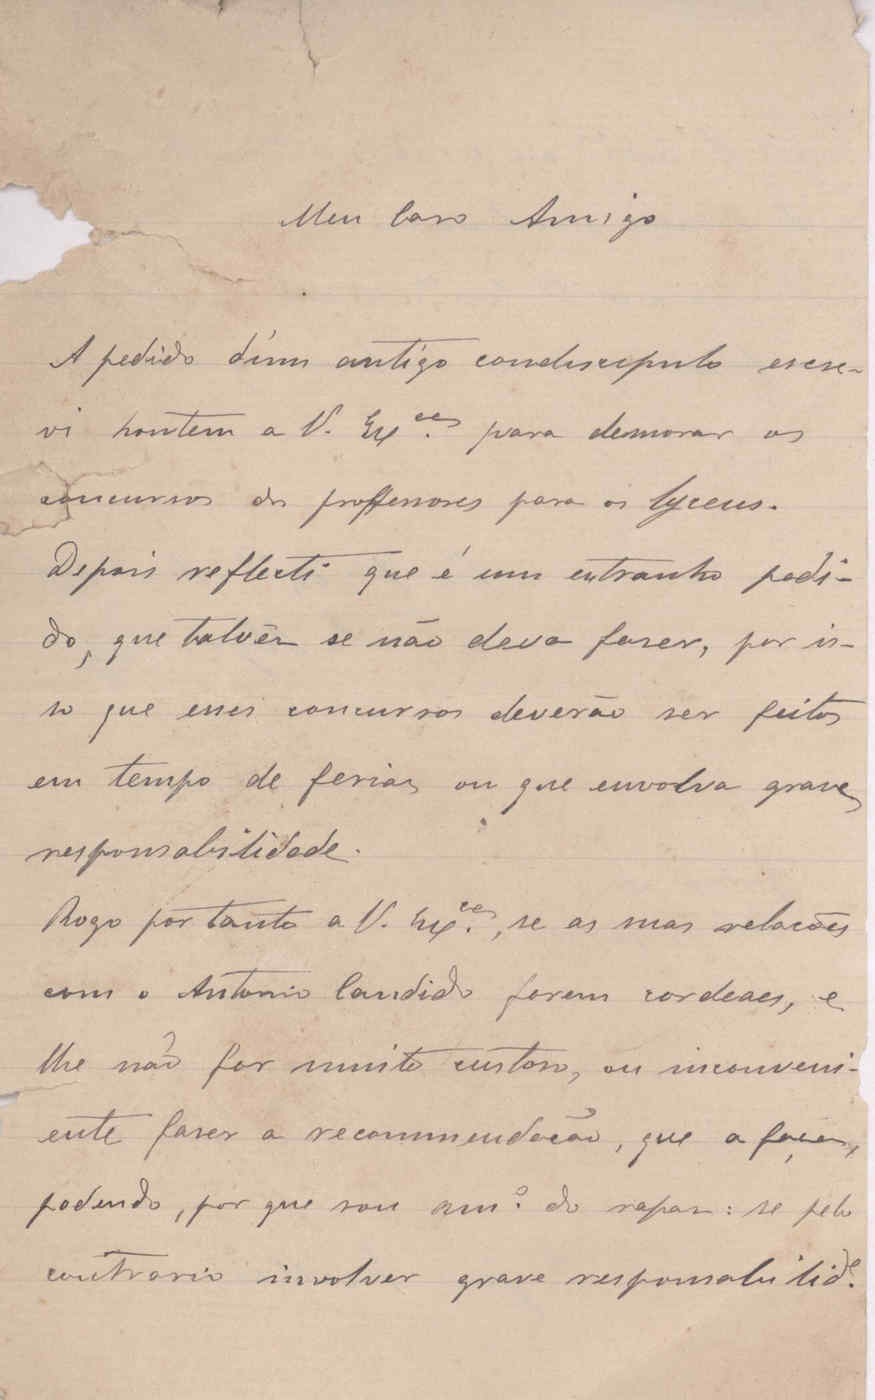 Meu Caro Amigo
A pedido d'um antigo condiscipulo escre-
vi hontem a V. Ex.cas para demorar os
concursos dos proffessores para os lyceus.
Depois reflecti que é um extranho pedi-
do, que talvês se não deva faser, por is-
so que esses concursos deverão ser feitos
em tempo de ferias ou que envolva graves
responsabilidade.
Rogo por tanto a V. Ex.cas, se as suas relacões
com o Antonio Candido forem cordeaes, e
lhe não for muito custoso, ou inconveni-
ente faser a recommendacão, que a faça,
podendo, por que sou am.º do rapas: se pelo
contrario involver grave responsabilid.e